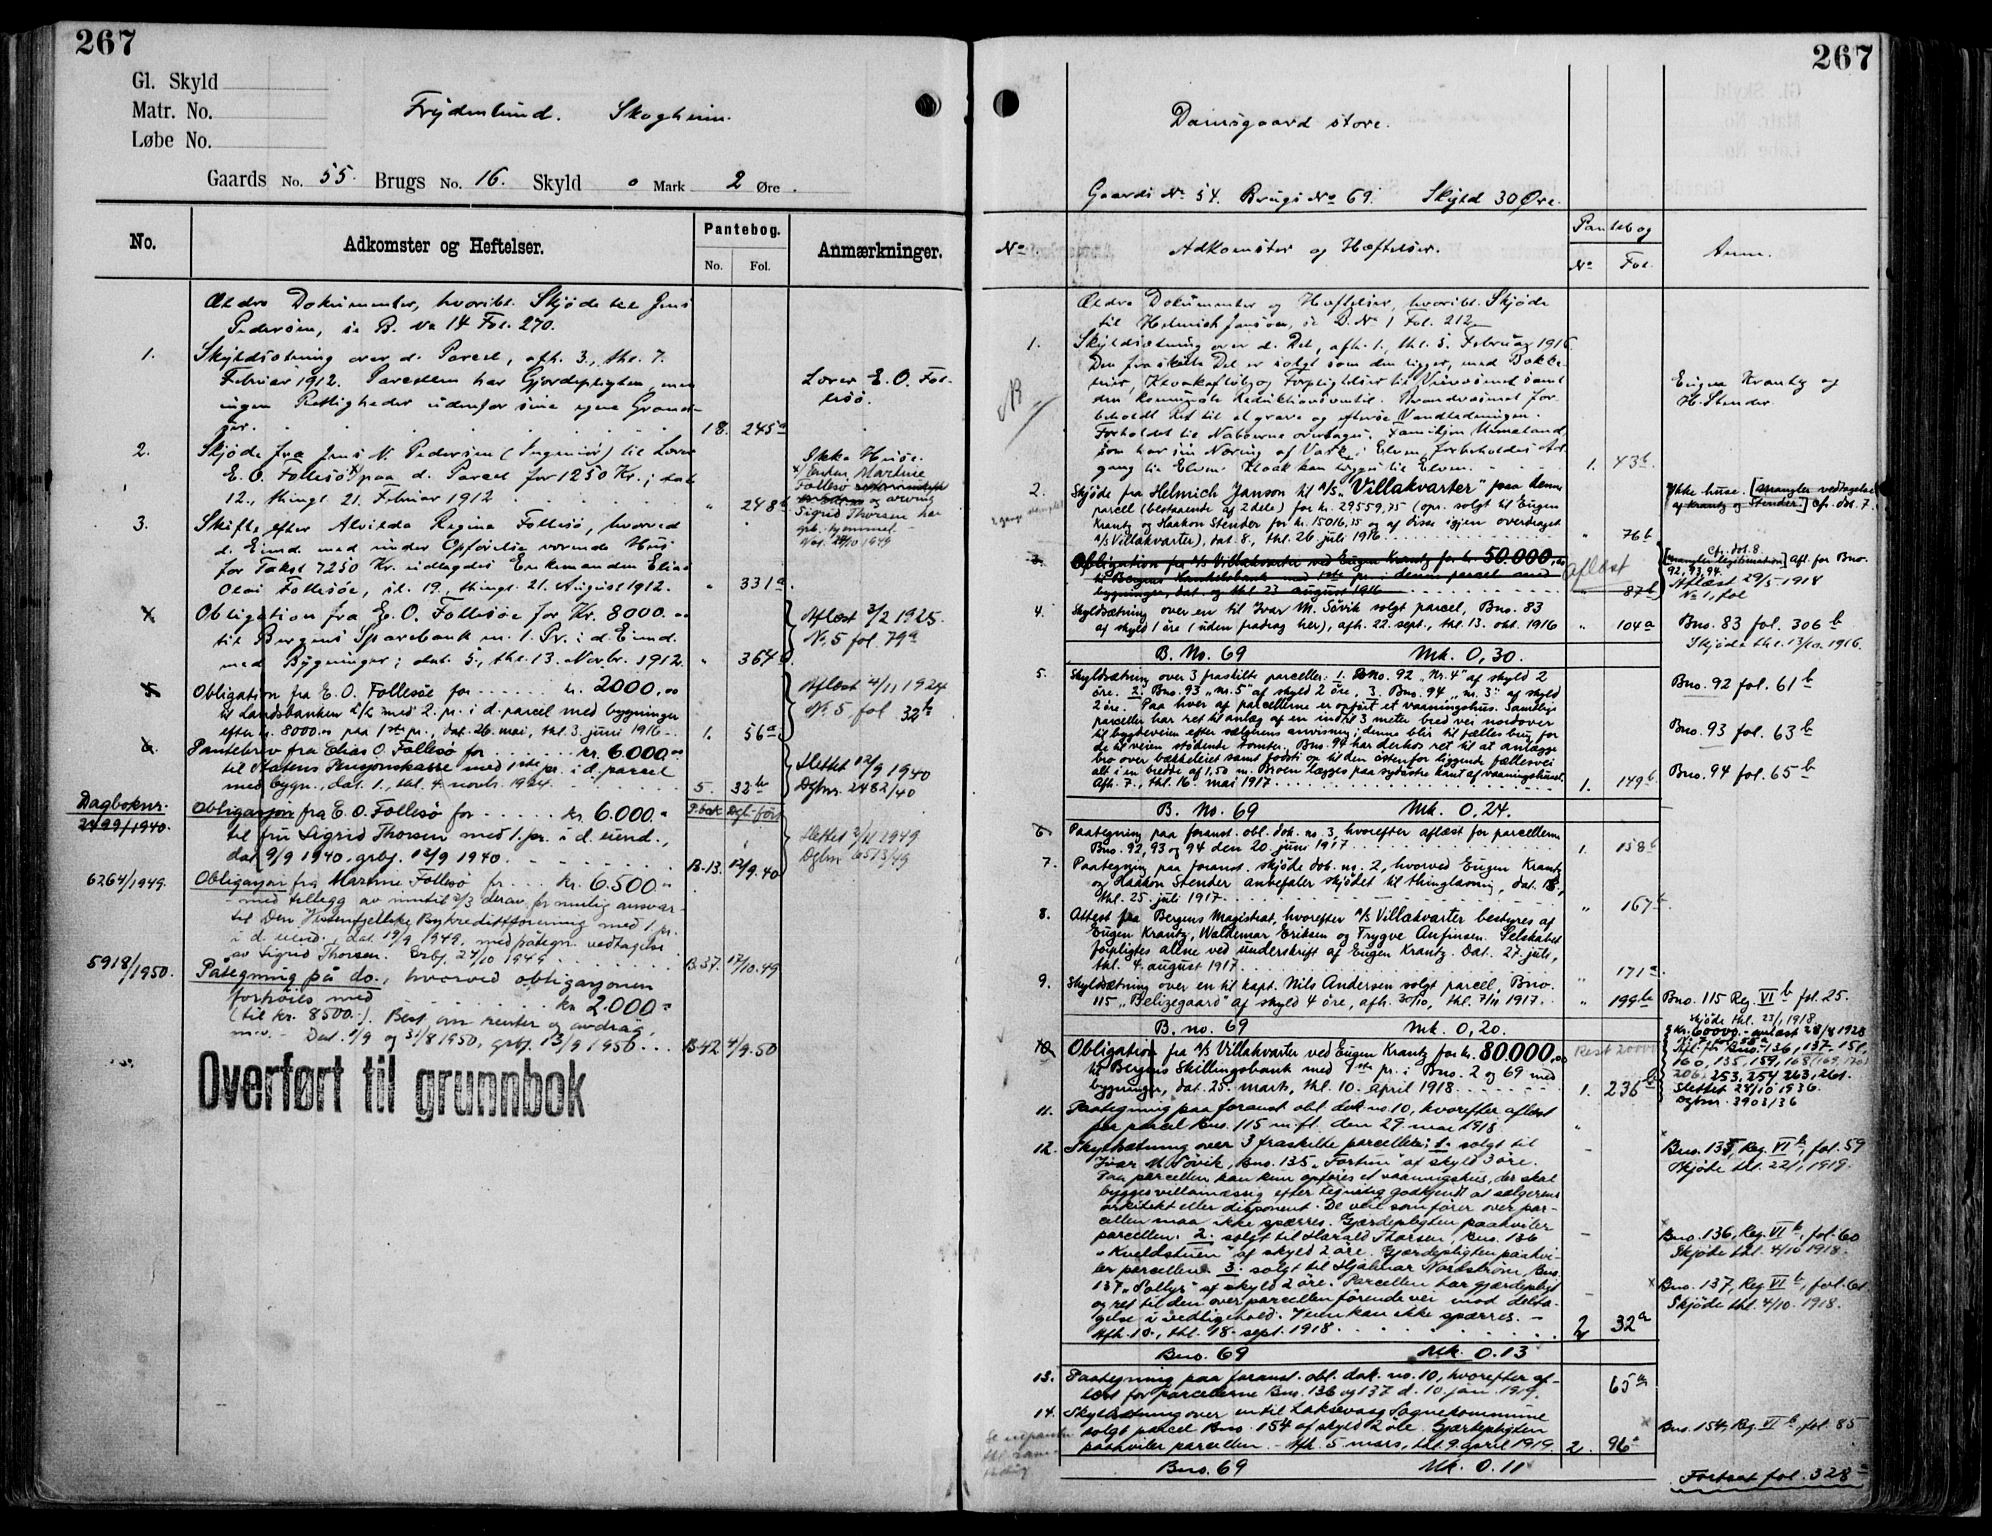 267
Gl. Skyld
Matr. No.
Løbe No.
Frydenlund. Skogheim.
Gaards No. 55. Brugs No. 16. Skyld 0 Mark 2 Øre.
No.
Adkomster og Heftelser.
Pantebog.
No. Fol.
Anmærkninger.
Ældre Dokumenter, hvoribl. Skjøde til Jens
Pedersen, se B. No 14 Fol. 270.
1. Skyldsætning over d. Parcel, afh. 3., thl. 7.
Februar 1912. Parcellen har Gjerdepligten, men
ingen Rettigheder udenfor sine egne Grænd-
ser. 18. 245a
Lærer E. O. Fol-
lesö.
2. Skjøde fra Jens N. Pedersen (Ingeniör) til Lærer
E. O. Follesö x) paa d. Parcel for 1250 Kr.; dat.
12., thingl. 21. Februar 1912 " 248b
Ikke Huse.
x) Enken Martine
Follesö
og arving
Sigrid Thorsen har
grb. hjemmel.
3. Skifte efter Alvilda Regina Follesö, hvorved
d. Eiend. med under Opförelse værende Hus
for Takst 7250 Kr. udlagdes Enkemanden Elias
Olai Follesöe, sl. 19., thingl. 21. August 1912. " 331a
4. Obligation fra E. O. Follesöe for Kr. 8000.00
til Bergens Sparebank m. 1. Pr. i d. Eiend.
med Bygninger; dat. 5., thl. 13. Novbr. 1912. " 364
Aflæst 3/2 1925.
No. 5 fol. 79a
5. Obligation fra E. O. Follesöe for kr. 2000,00
til Landsbanken A/S med 2. pr. i d. parcel med bygninger
efter kr. 8000.00 paa 1ste pr., dat. 26. mai, thl. 3. juni 1916 1. 56a
Aflæst 4/11 1924
No. 5 fol. 32b
6. Pantebrev fra Elias O. Follesö for kr. 6.000.00
til Statens Pensjonskasse med 1ste pr. i d. parcel
med bygn., dat. 1., thl. 4. novbr. 1924. 5. 32b
Slettet 12/9 1940
Dgbnr. 2482/40
Dagboknr.
2499/1940.
Obligasjon fra E. O. Follesö for kr. 6.000.-
til fru Sigrid Thorsen med 1. pr. i d. eiend.,
dat. 9/9 1940, grbf. 12/9 1940. B.13. 12/9.40
P.bok Dgl. ført
Slettet 2/11 1949
Dgbnr. 6513/49
6264/1949.
Obligasjon fra Martine Follesö for kr. 6.500.-
- med tillegg av inntil 2/3 derav for mulig ansvar -
til Den Vestenfjellske Bykredittforening med 1. pr.
i d. eiend., dat. 19/9 1949, med påtegn. vedtagelse
av Sigrid Thorsen. Grbf. 24/10 1949 B.37. 17/10.49
5918/1950.
Påtegning på do., hvorved obligasjonen
forhøies med kr. 2.000.-
(til kr. 8500.-). Best. om renter og avdrag,
m.v. - Dat. 1/9 og 31/8 1950, grbf. 13/9 1950 B.42 4/9.50
Overført til grunnbok
267
Damsgaard store.
Gaards No 54. Brugs No 69. Skyld 30 Øre.
No
Adkomster og Hæftelser.
Pantebog
No Fol.
Anm.
Ældre Dokumenter og Hæftelser, hvoribl. Skjøde
til Helmich Janson, se B. No 1 Fol. 212
1. Skyldsætning over d. Del, afh. 1., thl. 5. Februar 1916.
Den fraskilte Del er solgt som den ligger, med
Kloakafløb og Forpligtelser til Veivæsenet samt
den kommunale Reduktionsventil. Brandvæsenet for-
beholdt Ret til at grave og eftersee Vandledningen.
Forholdet til Naboerne overtages. Familjen
som har sin Næring af Vask i Elven, forbeholdes Ad-
gang til Elven. Kloak kan lægges til Elven. 1. 43b.
Eugen Krantz og
H. Stender.
2. Skjøde fra Helmich Janson til A/S "Villakvarter" paa denne
parcel (bestaaende af 2 dele) for kr. 29559,75 (opr. solgt til Eugen
Krantz og Haakon Stender for kr. 15016,75 og af disse igjen overdraget
A/S Villakvarter), dat. 8., thl. 26. juli 1916 " 76b
Ikke huse. [Mangler vedtagelse
af Krantz og Stender.] Cfr. dok. 7.
3. Obligation fra A/S Villakvarter ved Eugen Krantz for kr. 50.000,00
til Bergens Handelsbank med 1ste pr. i denne parcel med
bygninger, dat. og thl. 23. august 1916 " 87b
Aflæst
Cfr. dok. 8.
[Mangler legitimation] Afl. for Bno.
92, 93, 94.
Aflæst 29/5 1918
No. 1, fol
4. Skyldsætning over en til Ivar M. Søvik solgt parcel, Bno. 83
af skyld 1 øre (uden fradrag her), afh. 22. sept., thl. 13. okt. 1916 " 104a
Bno. 83 fol. 306b
Skjøde thl. 13/10 1916.
B. No. 69 Mk. 0,30.
5. Skyldsætning over 3 fraskilte parceller: 1. Bno. 92 "Nr. 4" af skyld 2
øre. 2. Bno. 93 "nr. 5" af skyld 2 øre, 3. Bno. 94 "nr. 3" af skyld
2 øre. Paa hver af parcellerne er opført et vaaningshus. Samtlige
parceller har ret til anlæg af en indtil 3 meter bred vei nordover
til bygdeveien efter sælgerens anvisning; denne blir til fælles brug for
de til veien stødende tomter. Bno. 94 har derhos ret til at anlægge
bro over bækkeleiet samt fodsti og til den østenfor liggende fællesvei
alt i en bredde af 1,50 m. Broen lægges paa sydøstre kant af vaaningshuset.
Afh. 7., thl. 16. mai 1917 1. 149b
Bno. 92 fol. 61b
Bno. 93 fol. 63b
Bno. 94 fol. 65b
B. No. 69 Mk. 0,24.
6. Paategning paa foranst. obl. dok. no. 3, hvorefter aflæst for parcellerne
Bno. 92, 93 og 94 den 20. juni 1917 1. 158b
7. Paategning paa foranst. skjøde dok. no. 2, hvorved Eugen Krantz
og Haakon Stender anbefaler skjødet til thinglæsning, dat. 18.,
thl. 25. juli 1917. " 167b
8. Attest fra Bergens Magistrat, hvorefter A/S Villakvarter bestyres af
Eugen Krantz, Waldemar Eriksen og Trygve Anfinsen. Selskabet
forpligtes alene ved underskrift af Eugen Krantz. Dat. 27. juli,
thl. 4. august 1917 " 171a
9. Skyldsætning over en til kapt. Nils Andersen solgt parcel, Bno.
115 "Belizegaard" af skyld 4 øre, afh. 30/10, thl. 7/11 1917. " 199b
Bno. 115 Reg. VI b fol. 25.
Skjøde thl. 23/1 1918.
B. no. 69 Mk. 0,20.
10. Obligation fra A/S Villakvarter ved Eugen Krantz for kr. 80.000,00
til Bergens Skillingsbank med 1ste pr. i Bno. 2 og 69 med
bygninger, dat. 25. mars, thl. 10. april 1918 1. 236b
Rest 20000
Kr. 60000.- avlæst 28/8 1928
Afl. for Bno. 136, 137, 151,
160, 135, 159, 168, 169, 170,
206, 253, 254, 263, 261.
Slettet 28/10 1936.
Dgbnr. 3903/36
11. Paategning paa foranst. obl. dok. no. 10, hvorefter aflæst
for parcel Bno. 115 m.fl. den 29. mai 1918. "
12. Skyldsætning over 3 fraskilte parceller: 1. solgt til
Ivar M. Søvik, Bno. 135 "Fortun" af skyld 3 øre.
Paa parcellen kan kun opføres et vaaningshus, der skal
bygges villamæssig efter tegning godkjendt af sælgerens
arkitekt eller disponent. De veie som fører over par-
cellen maa ikke spærres. Gjærdepligten paahviler
parcellen. 2. solgt til Harald Thorsen, Bno. 136
"Kveldstuen" af skyld 2 øre. Gjærdepligten paahvi-
ler parcellen. 3. solgt til Hjalmar Nordstrøm, Bno.
137 "Solbys" af skyld 2 øre. Parcellen har gjærdepligt
og ret til den over parcellen førende vei mod delta-
gelse i vedligehold. Veien kan ikke spærres. -
Afh. 10., thl. 18. sept. 1918. 2 32a
Bno. 135, Reg. VI b, fol. 59
Skjøde thl. 22/1 1919.
Bno. 136, Reg. VI b, fol. 60
Skjøde thl. 4/10 1918.
Bno. 137, Reg. VI b, fol. 61
Skjøde thl. 4/10. 1918.
Bno. 69 Mk. 0.13
13. Paategning paa foranst. obl. dok. no. 10, hvorefter af-
læst for parcellerne Bno. 136 og 137 d. 10. jan. 1919. 65a
14. Skyldsætning over en til Laksevaag Sognekommune
solgt parcel Bno. 154 af skyld 2 øre. Gjærdepligten
paahviler parcellen. - Afh. 5. mars, thl. 9. april 1919. 2. 96a
Bno. 154, Reg. VI b, fol. 85
Bno. 69 Mk. 0.11
Fortsat fol. 328